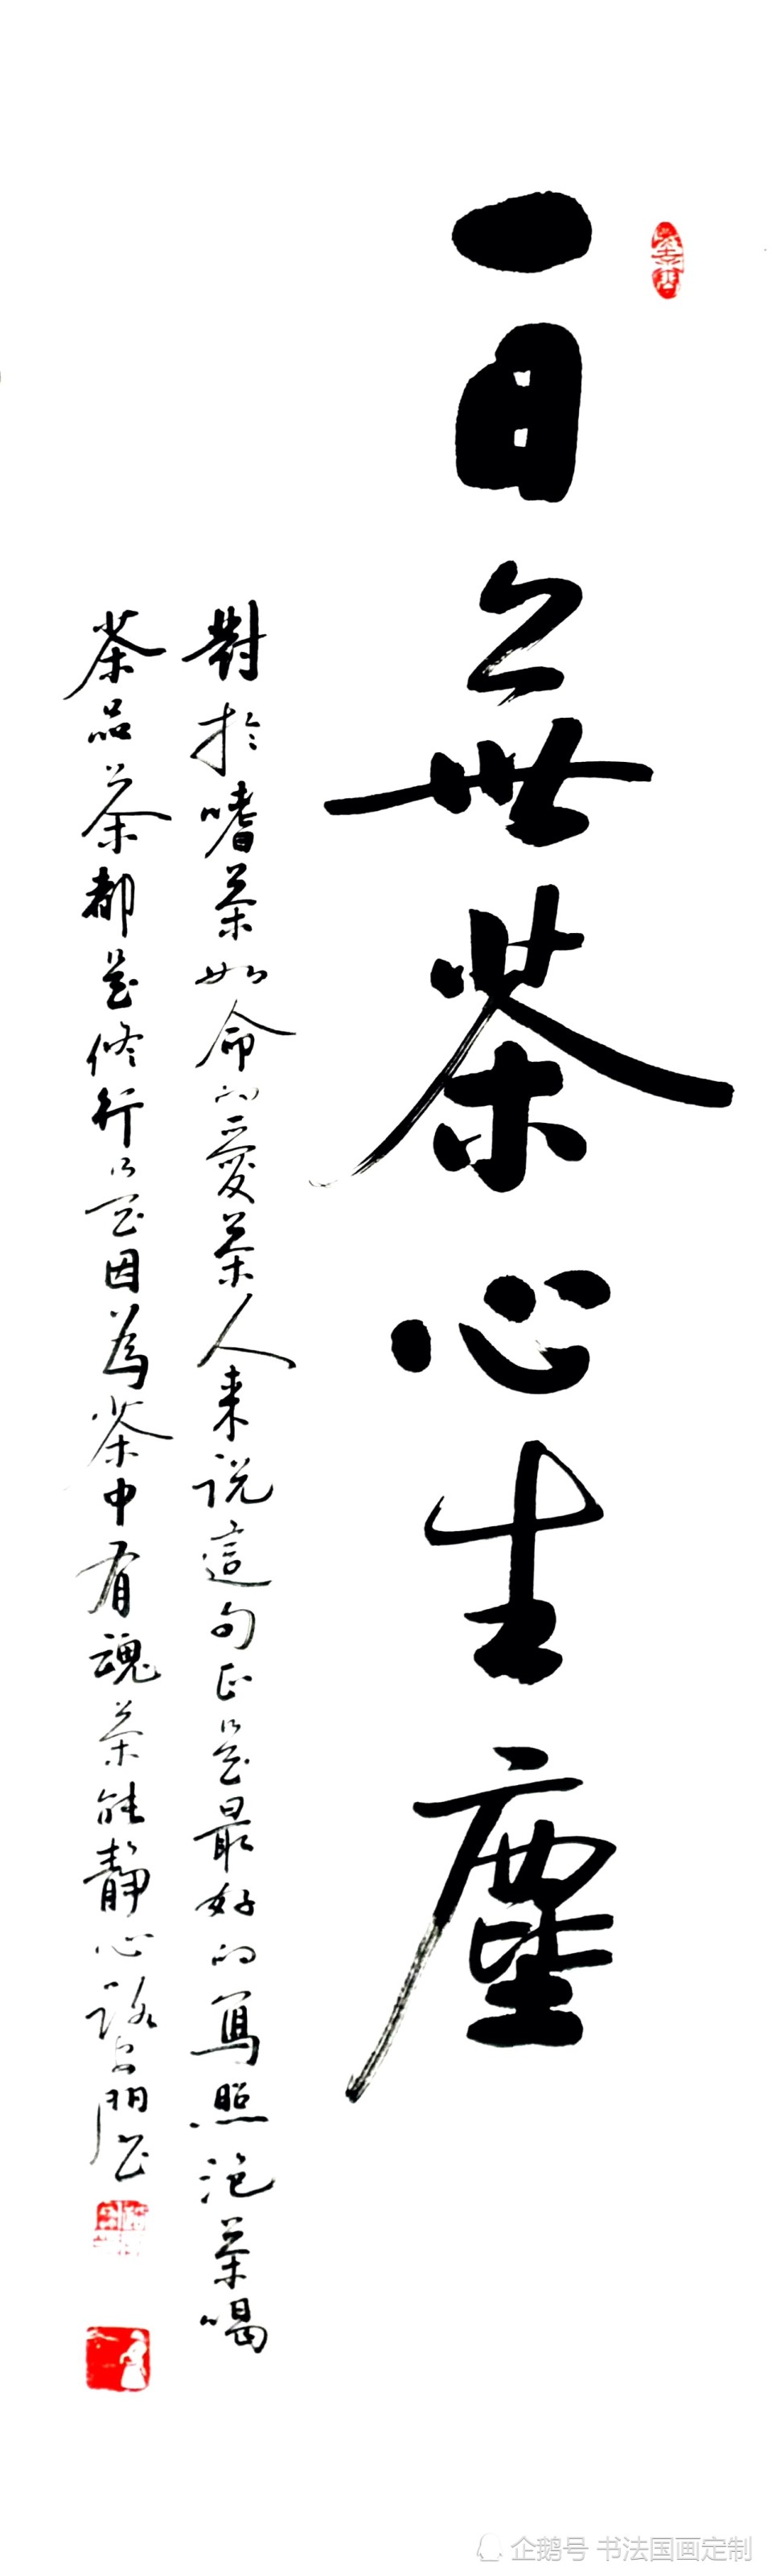 一日無茶心生塵
對於嗜茶如命的愛茶人来説這句正是最好的寫照泡茶喝
茶品茶都是修行是因為茶中有魂茶能靜心
企鹅号 书法国画定制